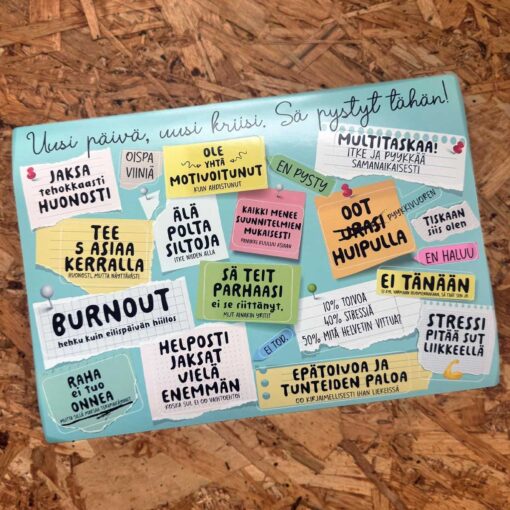 Uusi päivä, uusi kriisi. Sä pystyt tähän!
JAKSA
tehokkaasti
HUONOSTI
OISPA
VIINIÄ
OLE
YHTÄ
MOTIVOITUNUT
KUIN AHDISTUNUT
EN PYSTY
MULTITASKAA!
ITKE JA PYYKKÄÄ
SAMANAIKAISESTI
TEE
5 ASIAA
KERRALLA
HUONOSTI, MUTTA NÄYTTÄVÄSTI
ÄLÄ
POLTA
SILTOJA
ITKE NIIDEN ALLA
KAIKKI MENEE
SUUNNITELMIEN
MUKAISESTI
PANIIKKI KUULUU ASIAAN
OOT
URASI
PYYKKIVUOREN
HUIPULLA
TISKAAN
siis olen
EN HALUU
BURNOUT
hehku kuin eilispäivän hiillos
SÄ TEIT
PARHAASI
ei se riittänyt,
MUT AINAKIN YRITIT
10% TOIVOA
40% STRESSIÄ
50% MITÄ HELVETIN VITTUA?
EI TÄNÄÄN
STRESSI
PITÄÄ SUT
LIIKKEELLÄ
RAHA
ei tuo
ONNEA
HELPOSTI
JAKSAT
VIELÄ
ENEMMÄN
KOSKA SUL EI OO VAIHTOEHTOI
EI TOD.
EPÄTOIVOA JA
TUNTEIDEN PALOA
OO KIRJAIMELLISESTI IHAN LIEKEISSÄ